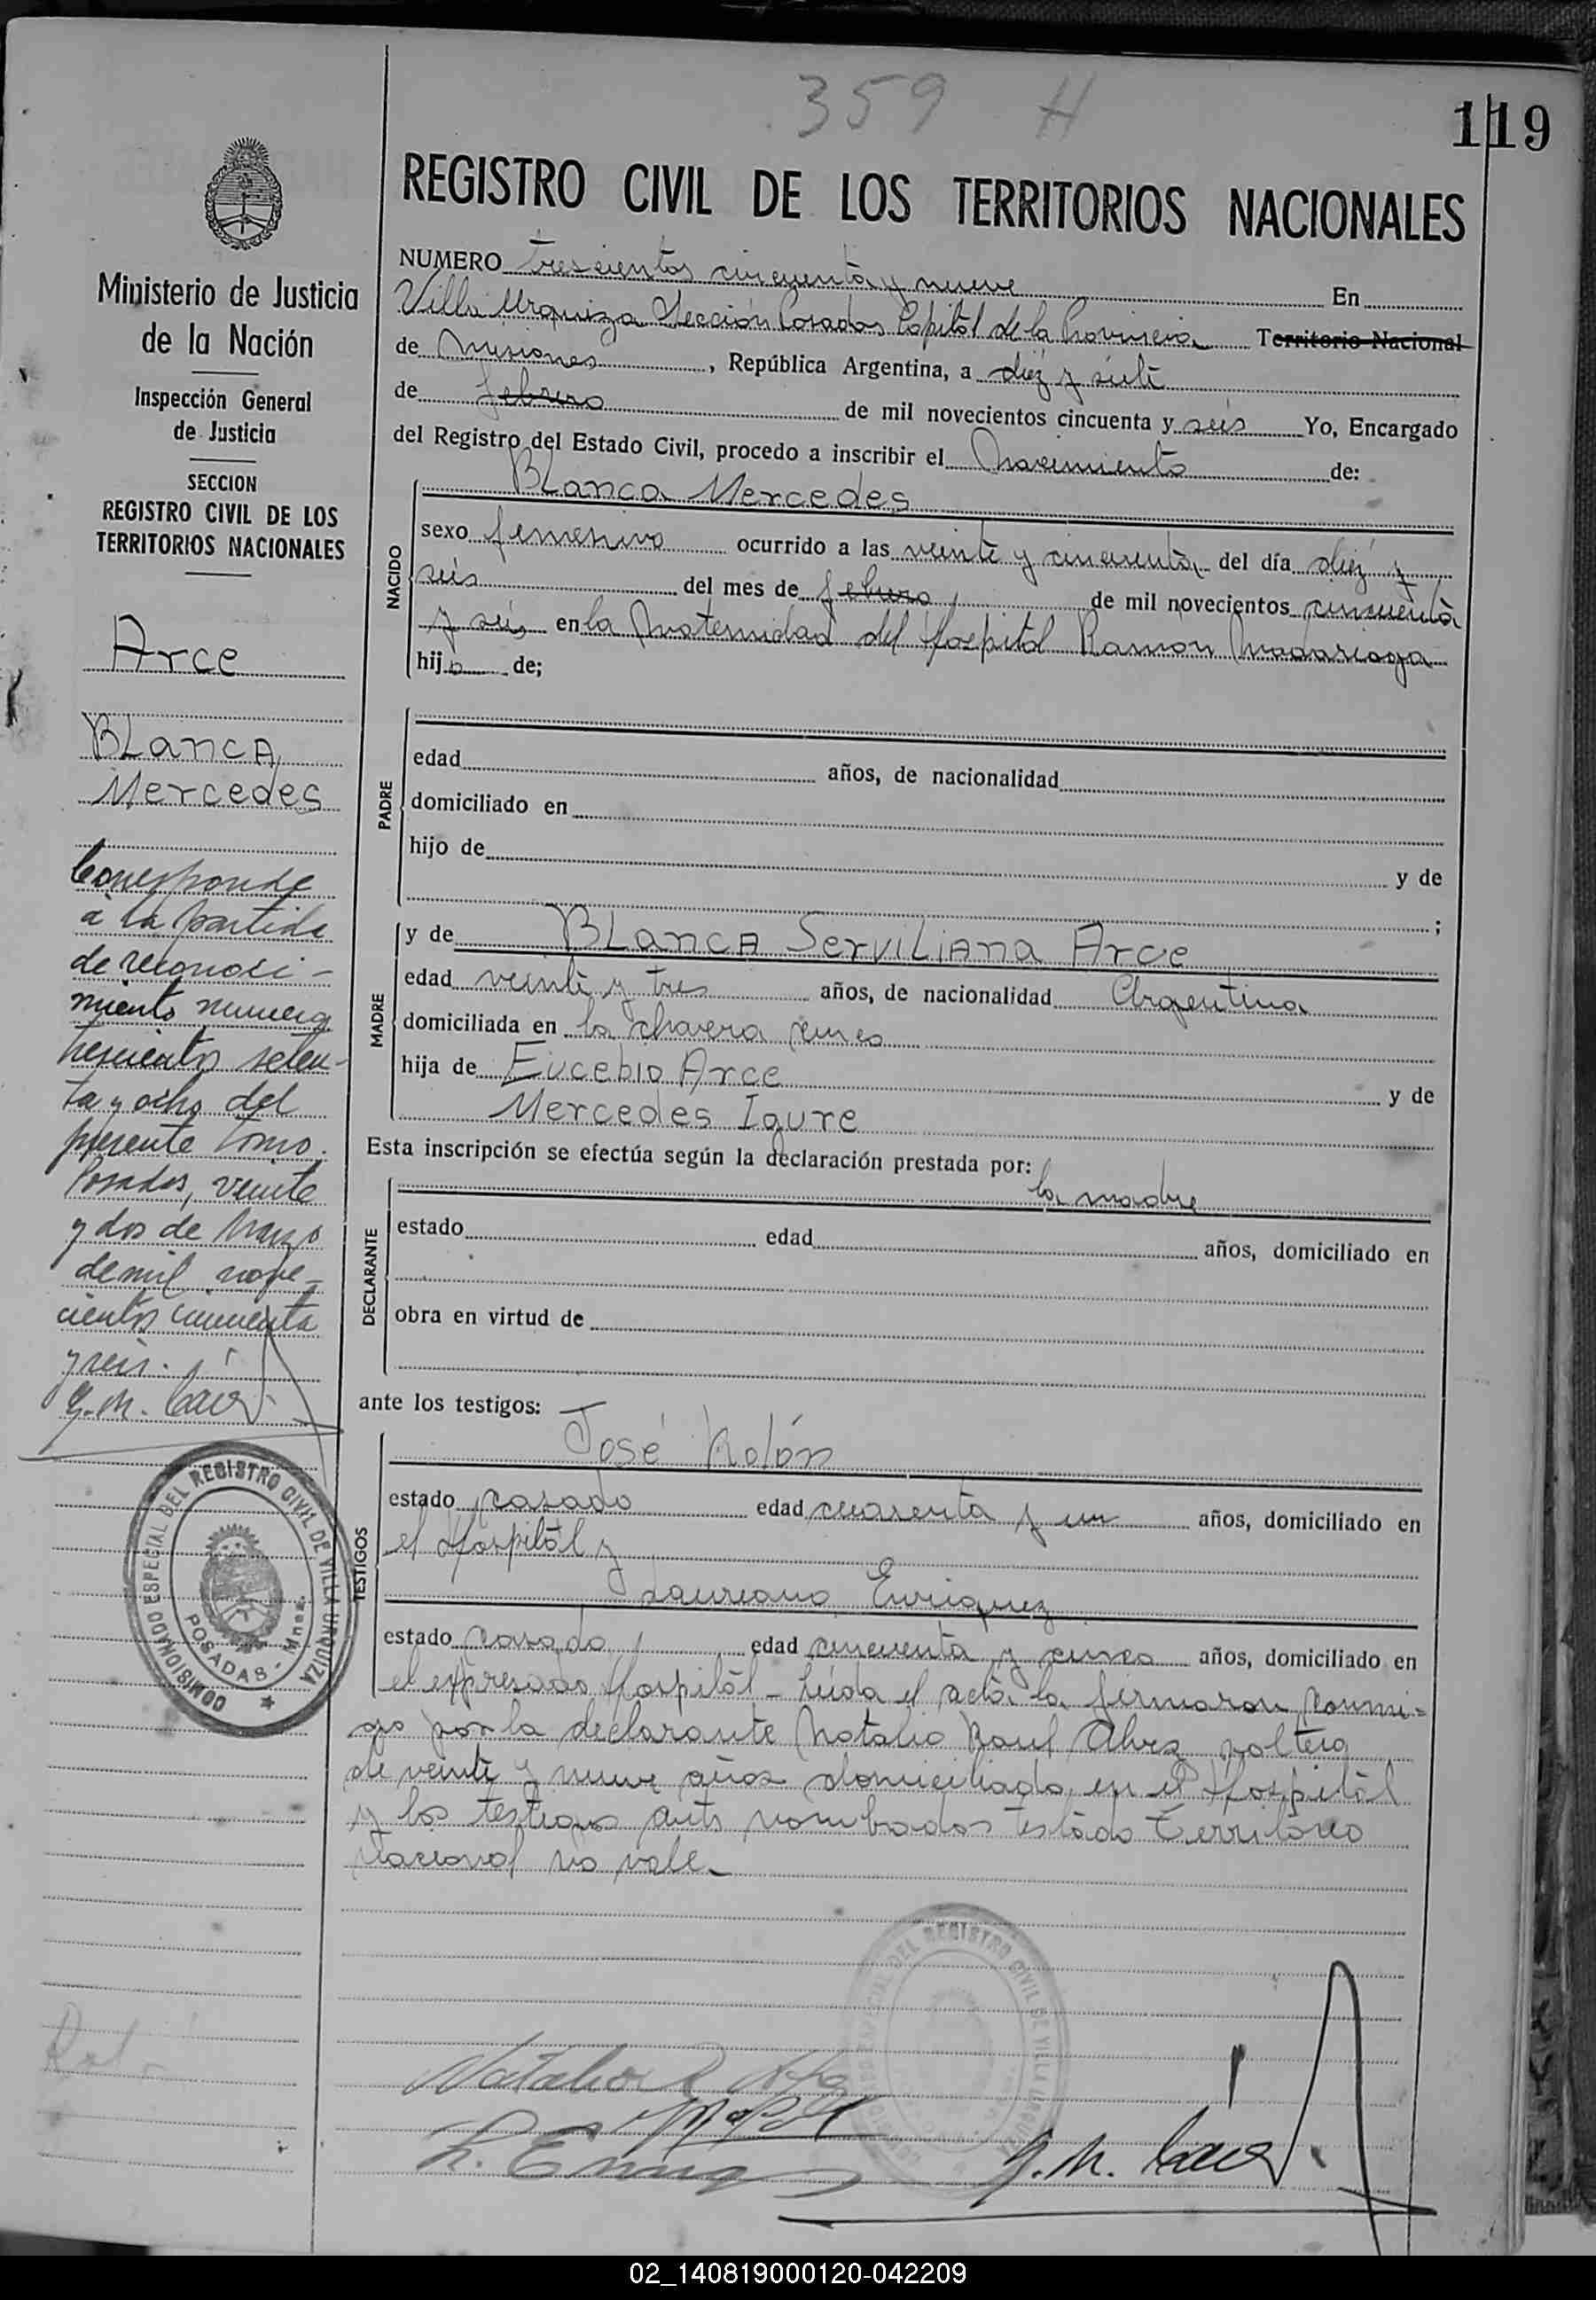 359 H
119
REGISTRO CIVIL DE LOS TERRITORIOS NACIONALES
Ministerio de Justicia
de la Nación
Inspección General
de Justicia
SECCION
REGISTRO CIVIL DE LOS
TERRITORIOS NACIONALES
Arce
BLanca
Mercedes
Corresponde
a la partida
de reconoci-
miento numero
trescientos seten-
ta y ocho del
presente tomo.
Posadas, veinte
y dos de Marzo
de mil nove-
cientos cincuenta
y seis.
COMISIONADO ESPECIAL DEL REGISTRO CIVIL DE VILLA URQUIZA
POSADAS - Mnes.
NUMERO trescientos cincuenta y nueve En
Villa Urquiza Sección Posadas Capital de la Provincia Territorio Nacional
de Misiones, República Argentina, a diez y siete
de febrero de mil novecientos cincuenta y seis Yo, Encargado
del Registro del Estado Civil, procedo a inscribir el Nacimiento de:
NACIDO
BLanca Mercedes
sexo femenino ocurrido a las veinte y cincuenta del día diez y
seis del mes de febrero de mil novecientos cincuenta
y seis en la Maternidad del Hospital Ramón Madariaga
hija de;
PADRE
edad años, de nacionalidad
domiciliado en
hijo de y de
;
MADRE
y de BLanca ServiLiana Arce
edad veinte y tres años, de nacionalidad Argentina
domiciliada en la chacra cinco
hija de Eucebio Arce y de
Mercedes Igure
Esta inscripción se efectúa según la declaración prestada por:
la madre
DECLARANTE
estado edad años, domiciliado en
obra en virtud de
ante los testigos:
TESTIGOS
José Rolón
estado casado edad cuarenta y un años, domiciliado en
el Hospital y
Laureano Enriquez
estado casado edad cincuenta y cinco años, domiciliado en
el expresado Hospital - Leida el acta la firmaron conmi-
go por la declarante Natalio Raul soltero
de veinte y nueve años domiciliado en el Hospital
y los testigos ants nombrados testado Territorio
Nacional no vale.
COMISIONADO ESPECIAL DEL REGISTRO CIVIL DE VILLA URQUIZA
Natalio R
L. Enriquez
02_140819000120-042209